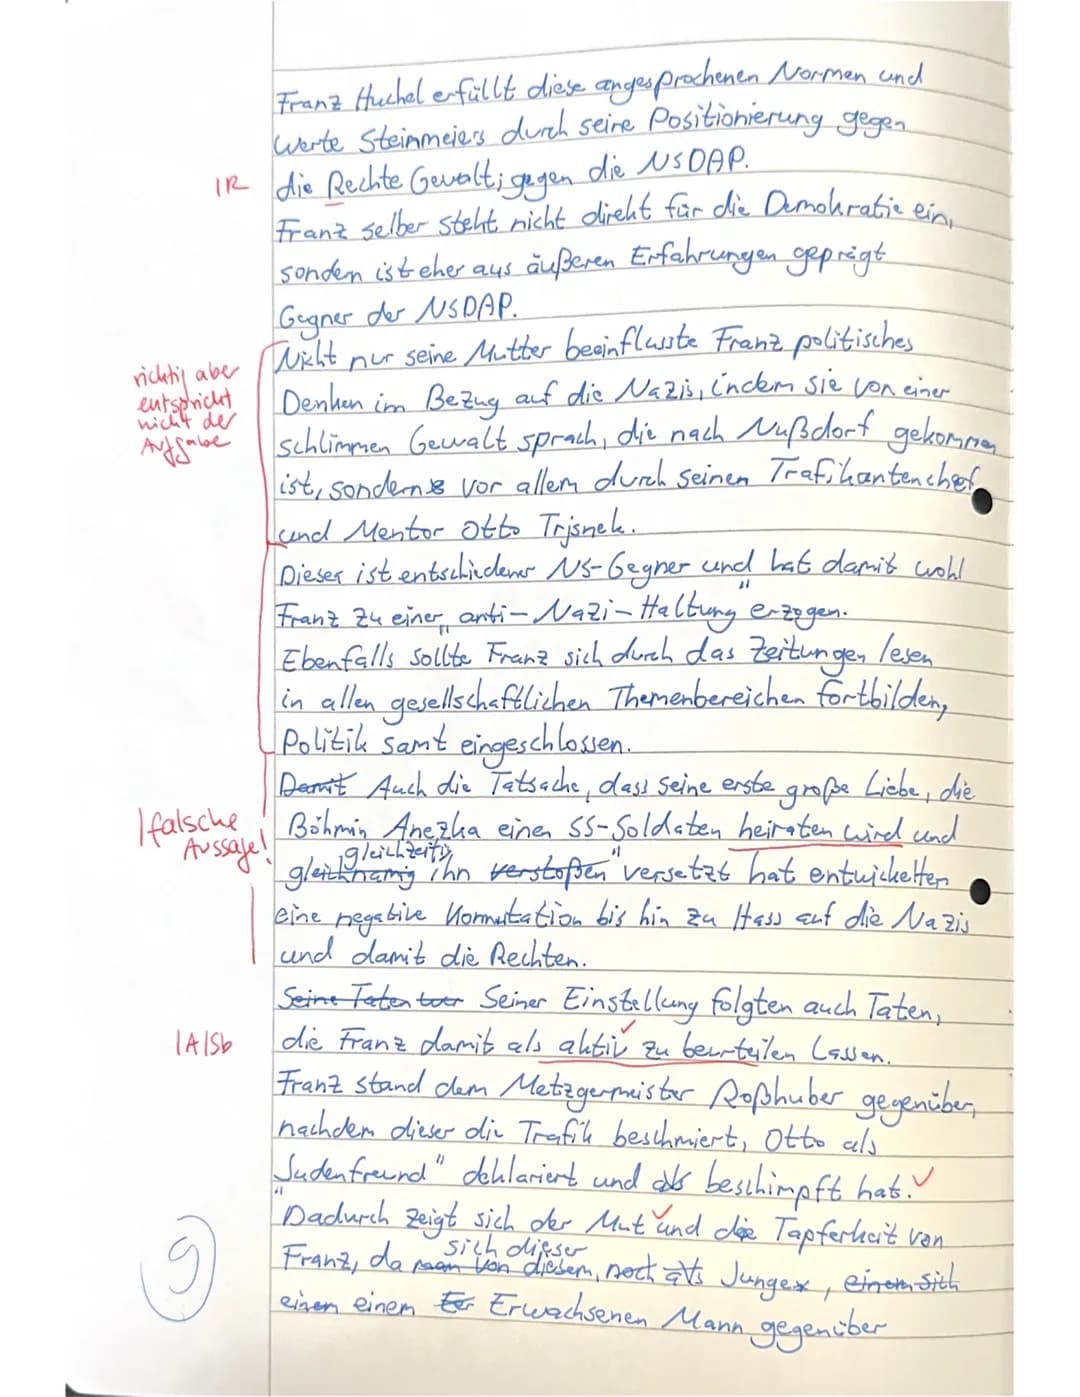 Franz Huchel erfüllt diese angesprochenen Normen und
Werte Steinmeiers durch seine Positionierung gegen
IR die Rechte Gewalt; gegen die NSDAP.
Franz selber steht nicht direkt für die Demokratie ein,
sondern ist eher aus äußeren Erfahrungen geprägt
Gegner der NSDAP.
Nicht nur seine Mutter beeinflusste Franz politisches
richtig aber
entspricht
nicht der
Aufgabe
Denken im Bezug auf die Nazis, indem sie von einer
schlimmen Gewalt sprach, die nach Nußdorf gekommen
ist, sondern vor allem durch seinen Trafikantenchef
und Mentor Otto Trjsnek.
Dieser ist entschiedener NS-Gegner und hat damit wohl
Franz zu einer „anti-Nazi-Haltung" erzogen.
Ebenfalls sollte Franz sich durch das Zeitungen lesen
in allen gesellschaftlichen Themenbereichen fortbilden,
Politik samt eingeschlossen.
Damit Auch die Tatsache, dass seine erste große Liebe, die
|falsche
Aussage!
Böhmin Anezka einen SS-Soldaten heiraten wird und
gleichzeitig
ihn verstoßen" versetzt hat entwickelten
eine negative Konnutation bis hin zu Hass auf die Nazis
und damit die Rechten.
Seine Taten Seiner Einstellung folgten auch Taten,
|A|Sb die Franz damit als aktiv zu beurteilen lassen.
Franz stand dem Metzgermeister Roßhuber gegenüber,
nachdem dieser die Trafik beschmiert, Otto als
„Judenfreund" deklariert und beschimpft hat.
Dadurch zeigt sich der Mut und die Tapferkeit von
sich dieser
Franz, da man von diesem, noch als Junge, einem sich
einem einem Erwachsenen Mann gegenüber
9